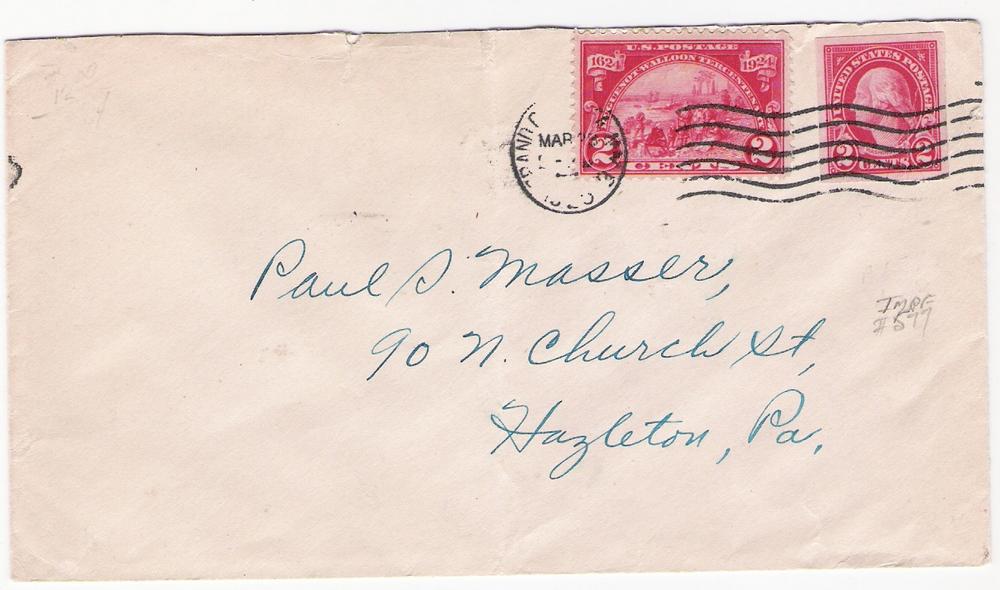 U.S. POSTAGE
1624 1924
HUGUENOT-WALLOON TERCENTENARY
2 CENTS 2
UNITED STATES POSTAGE
2 CENTS 2
MAR
Paul S. Masser,
90 N. Church St,
Hazleton, Pa.
IMPF
#577